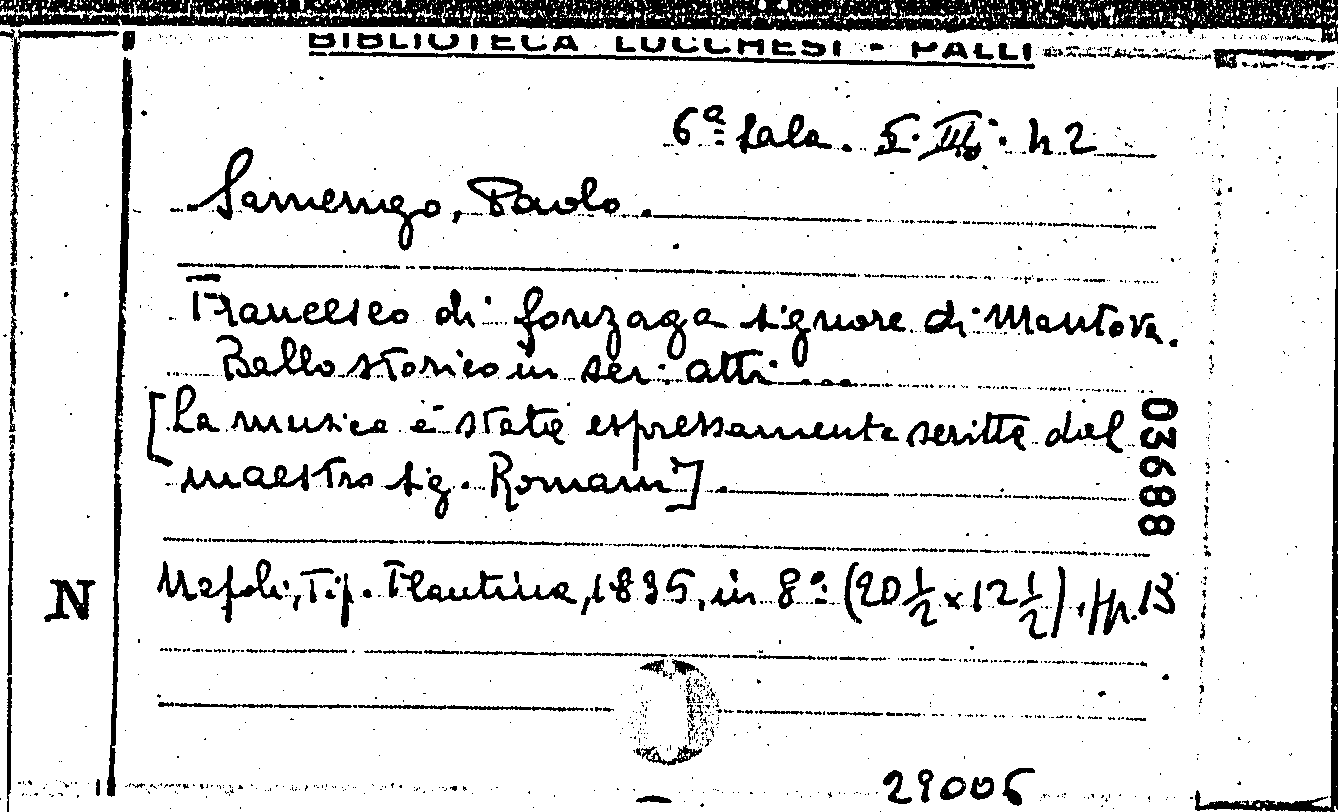 BIBLIOTECA LUCCHESI - PALLI
6ª Sala. 5. III. 42
Samengo, Paolo.
Francesco di Gonzaga signore di Mantova.
Ballo storico in sei atti...
[La musica è stata espressamente scritta dal
maestro sig. Romani].
03688
N
Napoli, Tip. Flautina, 1835, in 8º (20 1/2 x 12 1/2), pp. 13
29006